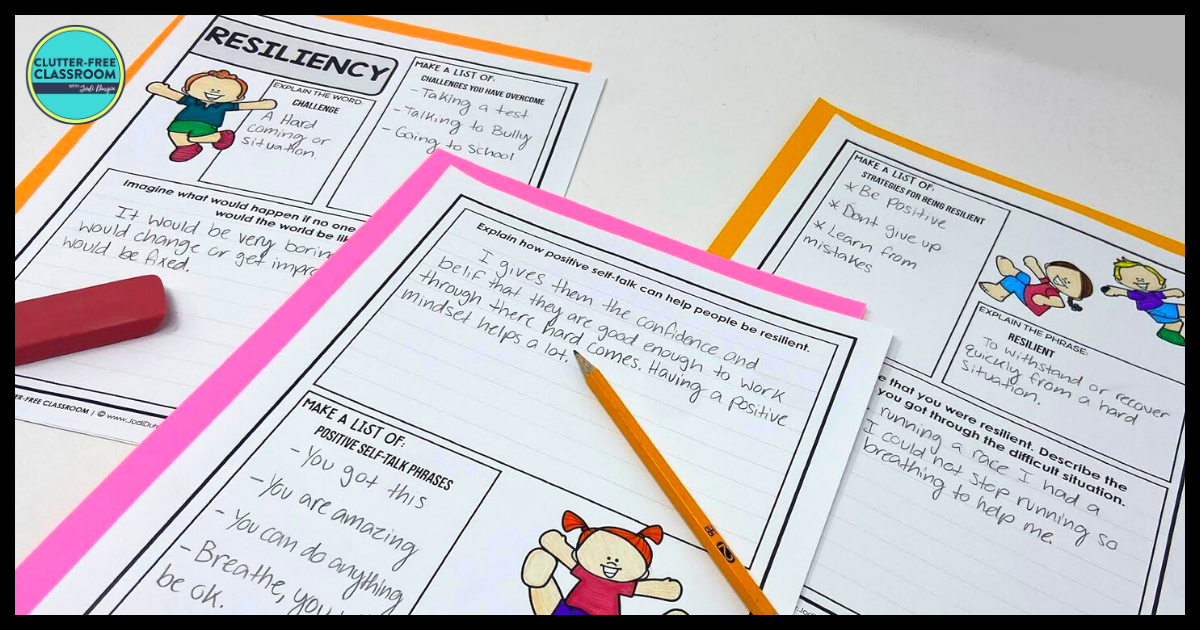 CLUTTER-FREE
CLASSROOM
WITH Jodi Durgin
RESILIENCY
EXPLAIN THE WORD:
CHALLENGE
A Hard
coming or
situation.
MAKE A LIST OF:
CHALLENGES YOU HAVE OVERCOME
- Taking a test
- Talking to Bully
- Going to School
Imagine what would happen if no one
would the world be
It would be very
would change or get
would be fixed.
CLASSROOM | ©
Explain how positive self-talk can help people be resilient.
I gives them the confidence and
belif that they are good enough to work
through there hard comes. Having a positive
mindset helps a lot.
MAKE A LIST OF:
POSITIVE SELF-TALK PHRASES
- You got this
- You are amazing
- You can do anything
- Breathe,
be ok.
2
MAKE A LIST OF:
STRATEGIES FOR BEING RESILIENT
* Be positive
* Dont give up
* Learn from
mistakes
EXPLAIN THE PHRASE:
RESILIENT
To withstand or recover
quickly from a hard
situation.
that you were resilient. Describe the
you got through the difficult situation.
running a race I had a
I could not stop running so
breathing to help me.